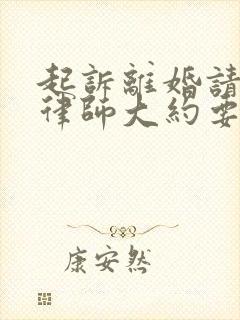 起訴離婚請
律師大約要
康安然